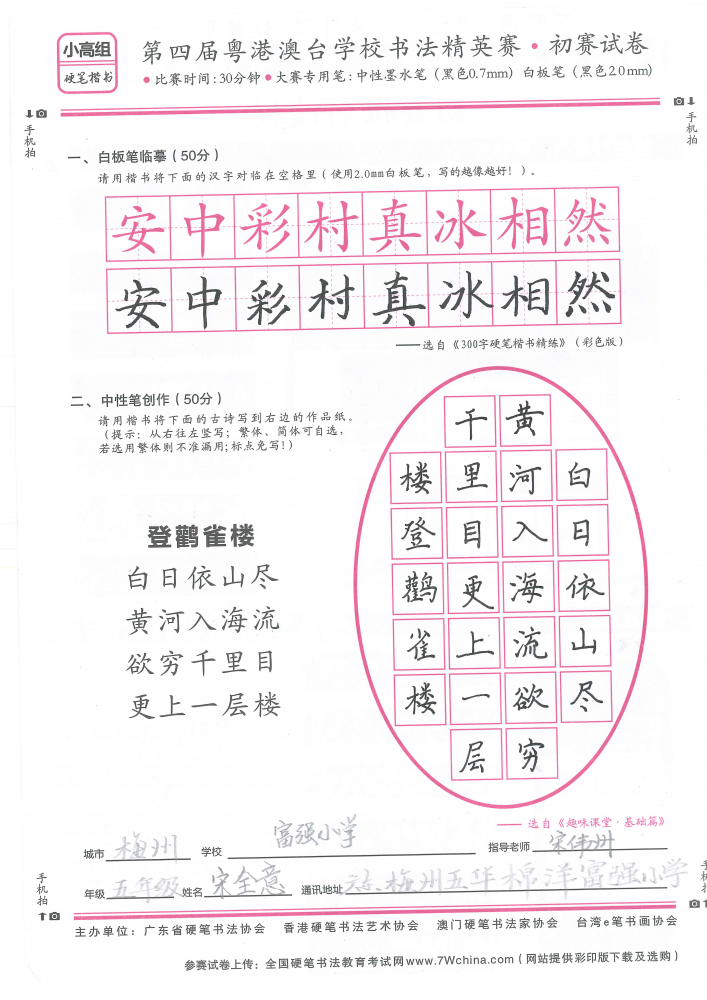 小高组
硬笔楷书
第四届粤港澳台学校书法精英赛·初赛试卷
●比赛时间:30分钟●大赛专用笔:中性墨水笔(黑色0.7mm) 白板笔(黑色2.0mm)
手机拍
手机拍
一、白板笔临摹(50分)
请用楷书将下面的汉字对临在空格里(使用2.0mm白板笔,写的越像越好!)。
安中彩村真冰相然
安中彩村真冰相然
——选自《300字硬笔楷书精练》(彩色版)
二、中性笔创作(50分)
请用楷书将下面的古诗写到右边的作品纸。
(提示:从右往左竖写;繁体、简体可自选,
若选用繁体则不准漏用;标点免写!)
登鹳雀楼
白日依山尽
黄河入海流
欲穷千里目
更上一层楼
白日依山尽
黄河入海流欲穷
千里目更上一层
楼登鹳雀楼
——选自《趣味课堂·基础篇》
城市 梅州 学校 富强小学 指导老师 宋伟州
年级 五年级 姓名 宋全意 通讯地址 梅州五华棉洋富强小学
手机拍
手机拍
主办单位:广东省硬笔书法协会 香港硬笔书法艺术协会 澳门硬笔书法家协会 台湾e笔书画协会
参赛试卷上传:全国硬笔书法教育考试网www.7Wchina.com(网站提供彩印版下载及选购)